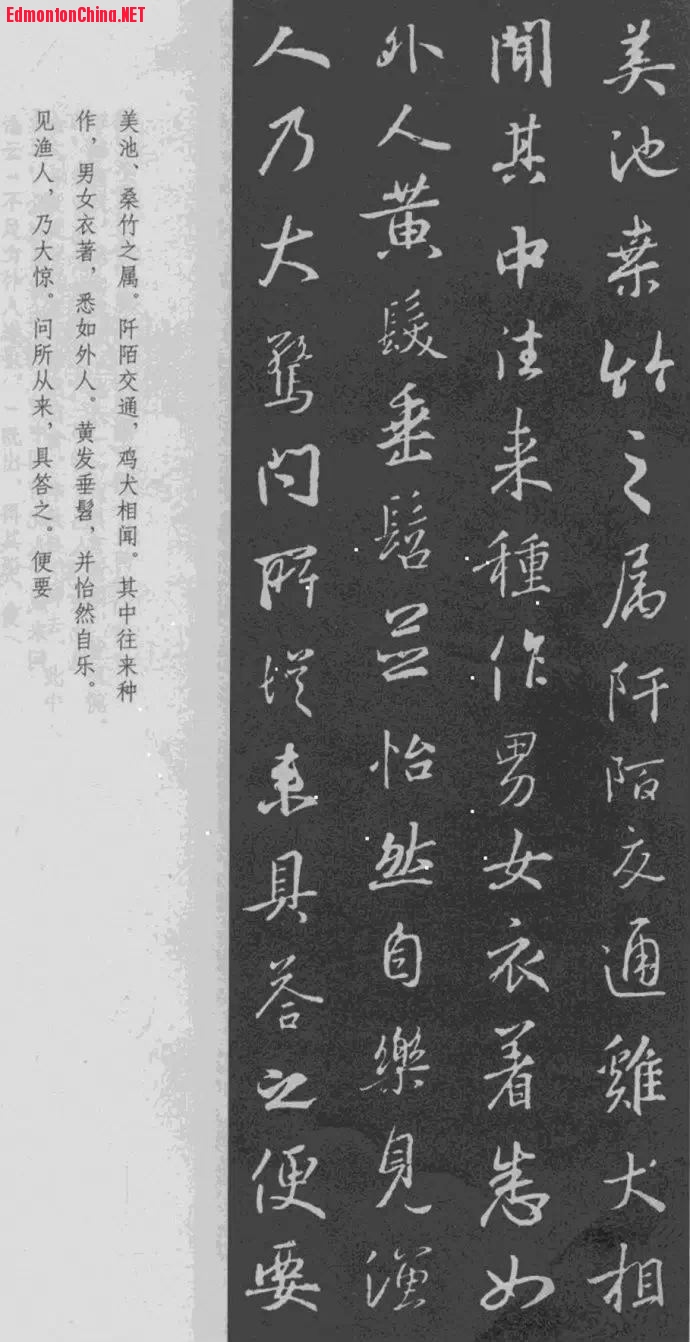 EdmontonChina.NET
美池桒竹之属阡陌交通雞犬相
聞其中往来種作男女衣着悉如
外人黄髮垂髫並怡然自樂見漁
人乃大驚问所從来具荅之便要
美池、桑竹之属。阡陌交通，鸡犬相闻。其中往来种
作，男女衣著，悉如外人。黄发垂髫，并怡然自乐。
见渔人，乃大惊。问所从来，具答之。便要